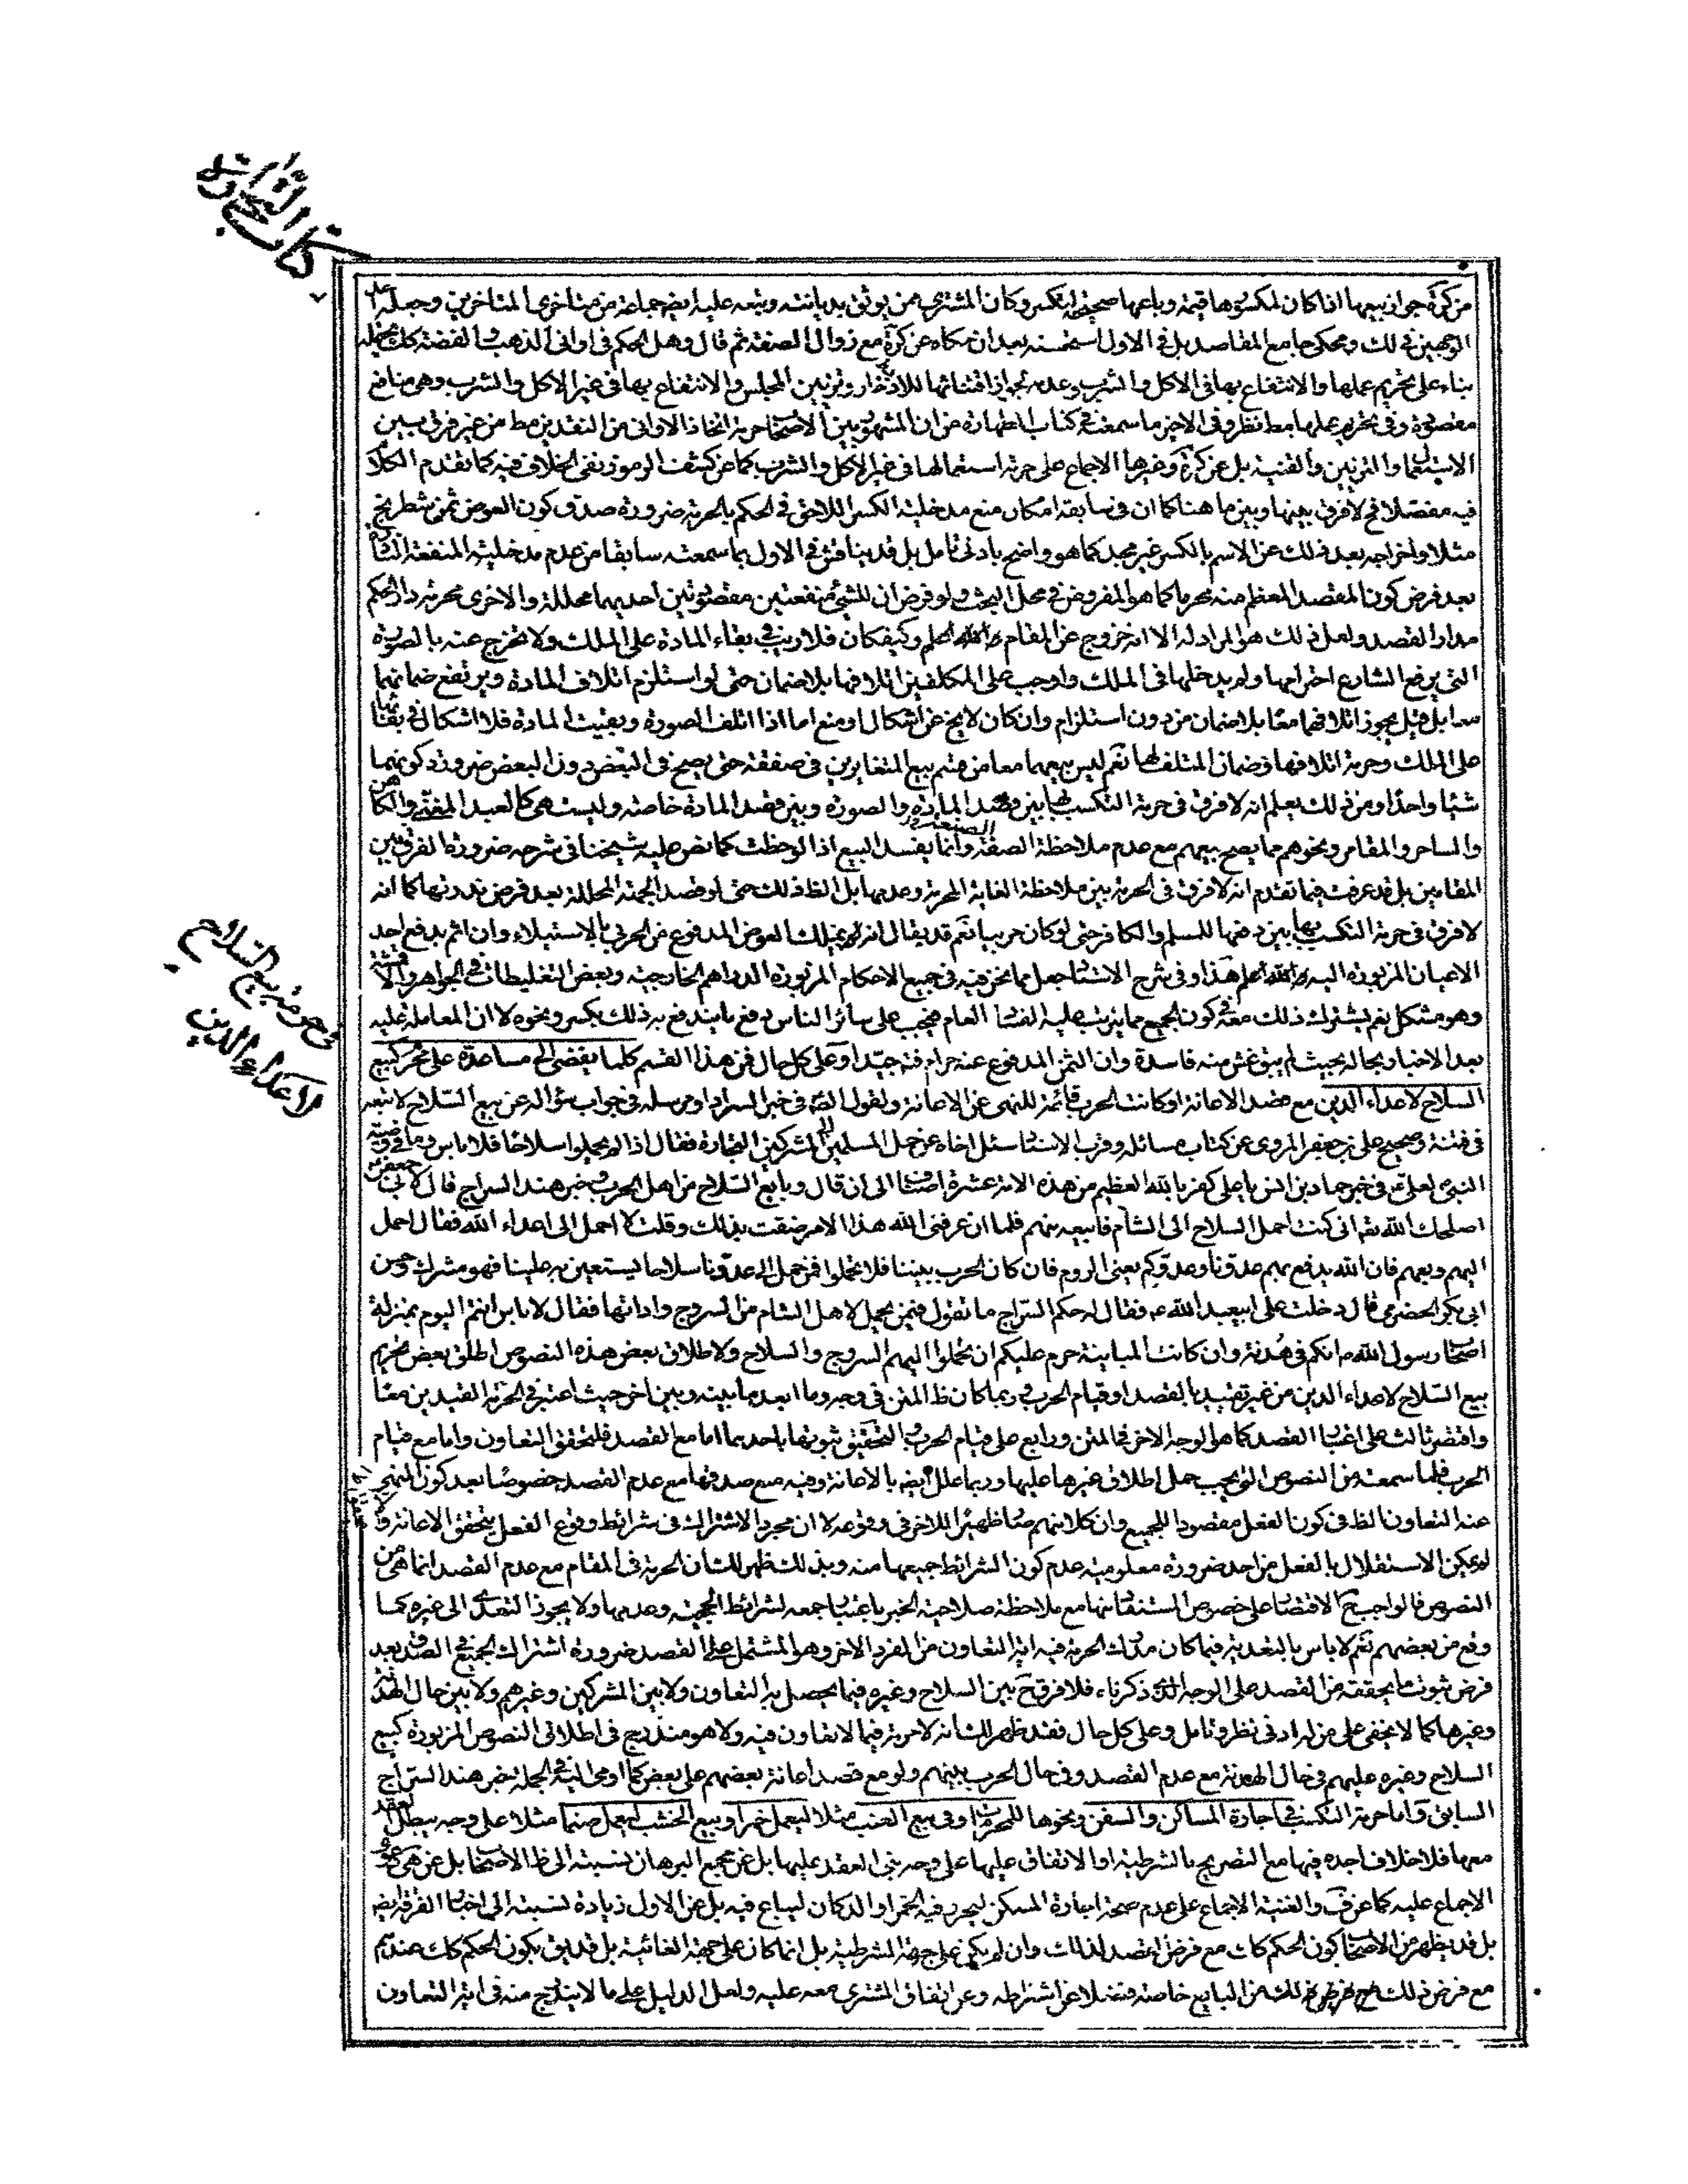 كتاب التجارة
من كرة جواز بيعها اذا كان لمكسورها قيمة وباعها صحيحة لتكسر وكان المشتري من يوثق بديانته وتبعه عليه ايضا جماعة من متاخري المتاخرين وحمله على
الوجهين في لك ومحكي جامع المقاصد بل في الاول استحسنه بعد ان حكاه عن كرة مع زوال الصفة ثم قال وهل الحكم في اواني الذهب والفضة كك يحتمله
بناء على تحريم عملها والانتفاع بها في الاكل والشرب وعدمه لجواز اقتنائها للادخار وتزيين المجلس والانتفاع بها في غير الاكل والشرب وهي منافع
مقصودة وفي تحريم عملها مط نظر وفي الاخير ما سمعته في كتاب الطهارة من ان المشهور بين الاصحاب حرمة اتخاذ الاواني من النقدين مط من غير فرق بين
الاستعمال والتزيين والقنية بل عن كرة وغيرها الاجماع على حرمة استعمالها في غير الاكل والشرب كما عن كشف الرموز نفي الخلاف فيه كما تقدم الكلام
فيه مفصلا فح لا فرق بينها وبين ما هنا كما ان في سابقه امكان منع مدخلية الكسر اللاحق في الحكم بالحرمة ضرورة صدق كون العوض ثمن شطرنج
مثلا واخراجه بعد ذلك عن الاسم بالكسر غير مجد كما هو واضح بادنى تامل بل قد يناقش في الاول بما سمعته سابقا من عدم مدخلية المنفعة النادرة
بعد فرض كون المقصد المعظم منه محرما كما هو المفروض في محل البحث ولو فرض ان للشيء منفعتين مقصودتين احديهما محللة والاخرى محرمة دار الحكم
مدار القصد ولعل ذلك هو المراد له الا انه خروج عن المقام والله اعلم وكيفكان فلا ريب في بقاء المادة على الملك ولا تخرج عنه بالصورة
التي يرفع الشارع احترامها ولم يدخلها في الملك واوجب على المكلفين اتلافها بلا ضمان حتى لو استلزم اتلاف المادة ويرتفع ضمانهما
معا بل قيل يجوز اتلافهما معا بلا ضمان من دون استلزام وان كان لا يخ عن اشكال او منع اما اذا اتلف الصورة وبقيت المادة فلا اشكال في بقائها
على الملك وحرمة اتلافها وضمان المتلف لها نعم ليس بيعهما معا من قسم بيع المتغايرين في صفقة حتى يصح في البعض دون البعض ضرورة كونهما
شيئا واحدا ومن ذلك يعلم انه لا فرق في حرمة التكسب بها بين قصد المادة والصورة وبين قصد المادة خاصة وليست هي كالعبد المغني والكاهن
والساحر والمقامر ونحوهم مما يصح بيعهم مع عدم ملاحظة الصفة وانما يفسد البيع اذا لوحظت كما نص عليه شيخنا في شرحه ضرورة الفرق بين
المقامين بل قد عرفت فيما تقدم انه لا فرق في الحرمة بين ملاحظة الغاية المحرمة وعدمها بل الظ ذلك حتى لو قصد الجهة المحللة بعد فرض ندرتها كما انه
لا فرق في حرمة التكسب بها بين دفعها للمسلم والكافر حتى لو كان حربيا نعم قد يقال انه يملك العوض المدفوع من الحربي بالاستيلاء وان اثم بدفع احد
الاعيان المزبورة اليه والله اعلم هذا وفي شرح الاستاد جعل مما نحن فيه في جميع الاحكام المزبورة الدراهم الخارجية وبعض التغليطات في الجواهر والاقمشة
وهو مشكل نعم يشترك ذلك معه في كون الجميع مما يترتب عليه الفساد العام فيجب على سائر الناس دفع ما يندفع به ذلك بكسر ونحوه لا ان المعاملة عليه
بعد الاخبار بحاله بحيث لم يبق غش منه فاسدة وان الثمن المدفوع عنه حرام فته جيدا وعلى كل حال فمن هذا القسم كلما يفضي الى مساعدة على محرم كبيع
السلاح لاعداء الدين مع قصد الاعانة او كانت الحرب قائمة للنهي عن الاعانة ولقول الص في خبر السراد او مرسله في جواب سؤاله عن بيع السلاح لا تبعه
في فتنة وصحيح علي بن جعفر المروي عن كتاب مسائله وقرب الاسناد سئل اخاه عن حمل المسلمين الى المشركين التجارة فقال اذا لم يحملوا سلاحا فلا باس وما في وصية
النبي لعلي ع في خبر حماد بن انس يا علي كفر بالله العظيم من هذه الامة عشرة اصناف الى ان قال وبايع السلاح من اهل الحرب وخبر هند السراج قال لابي جعفر ع
اصلحك الله تع اني كنت احمل السلاح الى الشام فابيعه منهم فلما ان عرفني الله هذا الامر ضقت بذلك وقلت لا احمل الى اعداء الله فقال احمل
اليهم وبعهم فان الله يدفع بهم عدونا وعدوكم يعني الروم فان كان الحرب بيننا فلا تحملوا فمن حمل الى عدونا سلاحا يستعين به علينا فهو مشرك وحسن
ابي بكر الحضرمي قال دخلت على ابيعبد الله ع فقال له حكم السراج ما تقول فيمن يحمل لاهل الشام من السروج واداتها فقال لا باس انتم اليوم بمنزلة
اصحاب رسول الله ص انكم في هدنة وان كانت المباينة حرم عليكم ان تحملوا اليهم السروج والسلاح ولاطلاق بعض هذه النصوص اطلق بعض تحريم
بيع السلاح لاعداء الدين من غير تقييد بالقصد او قيام الحرب وربما كان ظ المتن في وجه وما ابعد ما بينه وبين اخر حيث اعتبر في الحرمة القيدين معا
واقتصر ثالث على اعتبار القصد كما هو الوجه الاخر في المتن ورابع على قيام الحرب والتحقيق ثبوتها باحدهما اما مع القصد فلتحقق التعاون واما مع قيام
الحرب فلما سمعته من النصوص التي يجب حمل اطلاق غيرها عليها وربما علل ايضا بالاعانة وفيه منع صدقها مع عدم القصد خصوصا بعد كون المنهي
عنه التعاون الظ في كون الفعل مقصودا للجميع وان كلا منهم صار ظهيرا للاخر في وقوعه لا ان مجرد الاشتراك في شرائط وقوع الفعل يتحقق الاعانة والا
لم يمكن الاستقلال بالفعل من احد ضرورة معلومية عدم كون الشرائط جميعها منه وبذلك ظهر لك ان الحرمة في المقام مع عدم القصد انما هي من
النصوص فالواجب ح الاقتصار على خصوص المستفاد منها مع ملاحظة صلاحية الخبر باعتبار جمعه لشرائط الحجية وعدمها ولا يجوز التعدي الى غيره كما
وقع من بعضهم نعم لا باس بالتعدية فيما كان مدرك الحرمة فيه اية التعاون من الفرد الاخر وهو المشتمل على القصد ضرورة اشتراك الجميع في الصدق بعد
فرض ثبوت ما يحققه من القصد على الوجه الذي ذكرناه فلا فرق ح بين السلاح وغيره فيما يحصل به التعاون ولا بين المشركين وغيرهم ولا بين حال الهدنة
وغيرها كما لا يخفى على من له ادنى نظر وتامل وعلى كل حال فقد ظهر لك انه لا حرمة فيما لا تعاون فيه ولا هو مندرج في اطلاق النصوص المزبورة كبيع
السلاح وغيره عليهم في حال الهدنة مع عدم القصد وفي حال الحرب بينهم ولو مع قصد اعانة بعضهم على بعض كما اومى اليه في الجملة خبر هند السراج
السابق واما حرمة التكسب في اجارة المساكن والسفن ونحوها للمحرمات وفي بيع العنب مثلا ليعمل خمرا وبيع الخشب ليعمل صنما مثلا على وجه يبطل العقد
معها فلا خلاف اجده فيها مع التصريح بالشرطية او الاتفاق عليها على وجه بني العقد عليها بل عن مجمع البرهان نسبته الى ظ الاصحاب بل عن هى دعوى
الاجماع عليه كما عن ف والغنية الاجماع على عدم صحة اجارة المسكن ليحرز فيه الخمر او الدكان ليباع فيه بل عن الاول زيادة نسبته الى اخبار الفرقة ايضا
بل قد يظهر من الاصحاب كون الحكم كك مع فرض القصد لذلك وان لم يكن على جهة الشرطية بل انما كان على جهة الغائية بل قد يق بكون الحكم كك عندهم
مع فرض ذلك من البايع خاصة فضلا عن اشتراطه وعن اتفاق المشتري معه عليه ولعل الدليل على ما لا يندرج منه في اية التعاون
في حرمة بيع السلاح
لاعداء الدين